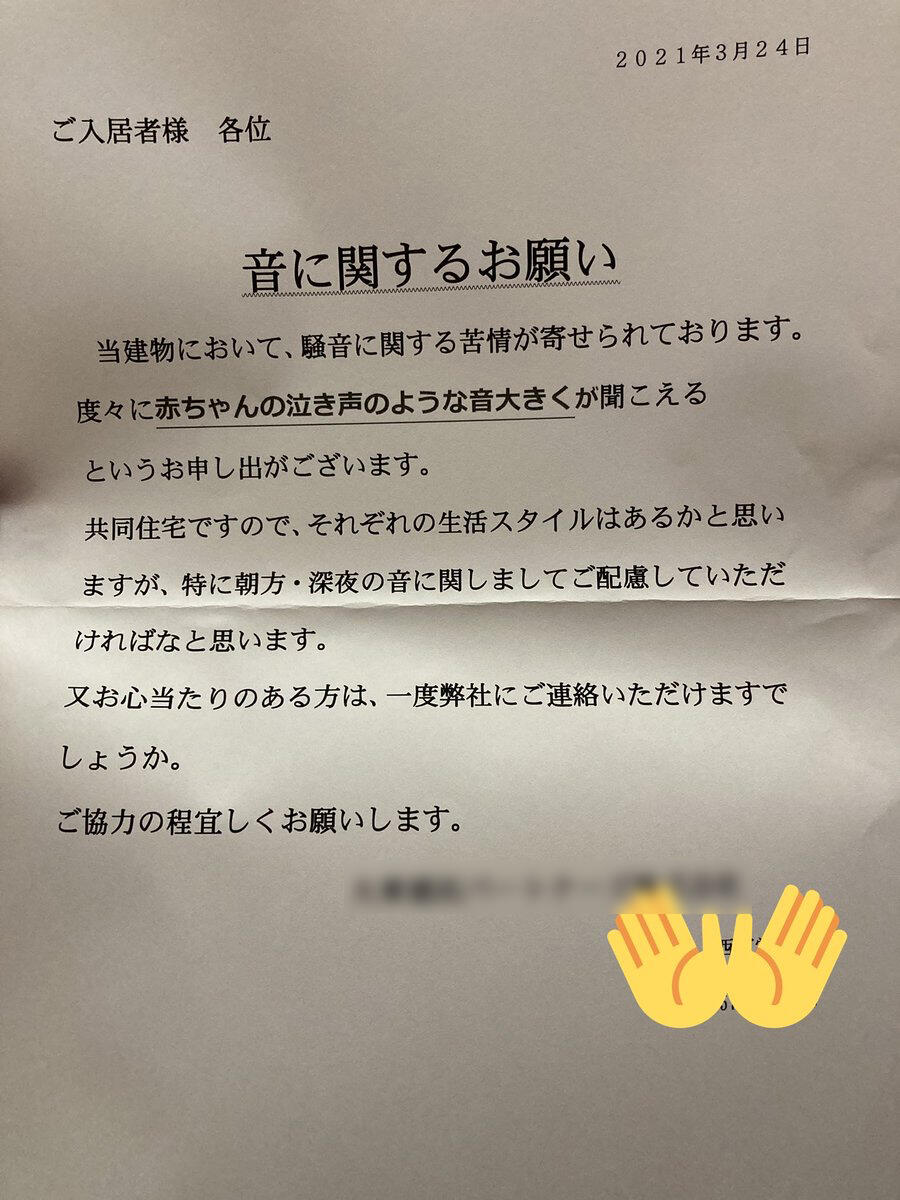 2021年3月24日
ご入居者様　各位
音に関するお願い
当建物において、騒音に関する苦情が寄せられております。
度々に赤ちゃんの泣き声のような音大きくが聞こえる
というお申し出がございます。
共同住宅ですので、それぞれの生活スタイルはあるかと思い
ますが、特に朝方・深夜の音に関しましてご配慮していただ
ければなと思います。
又お心当たりのある方は、一度弊社にご連絡いただけますで
しょうか。
ご協力の程宜しくお願いします。